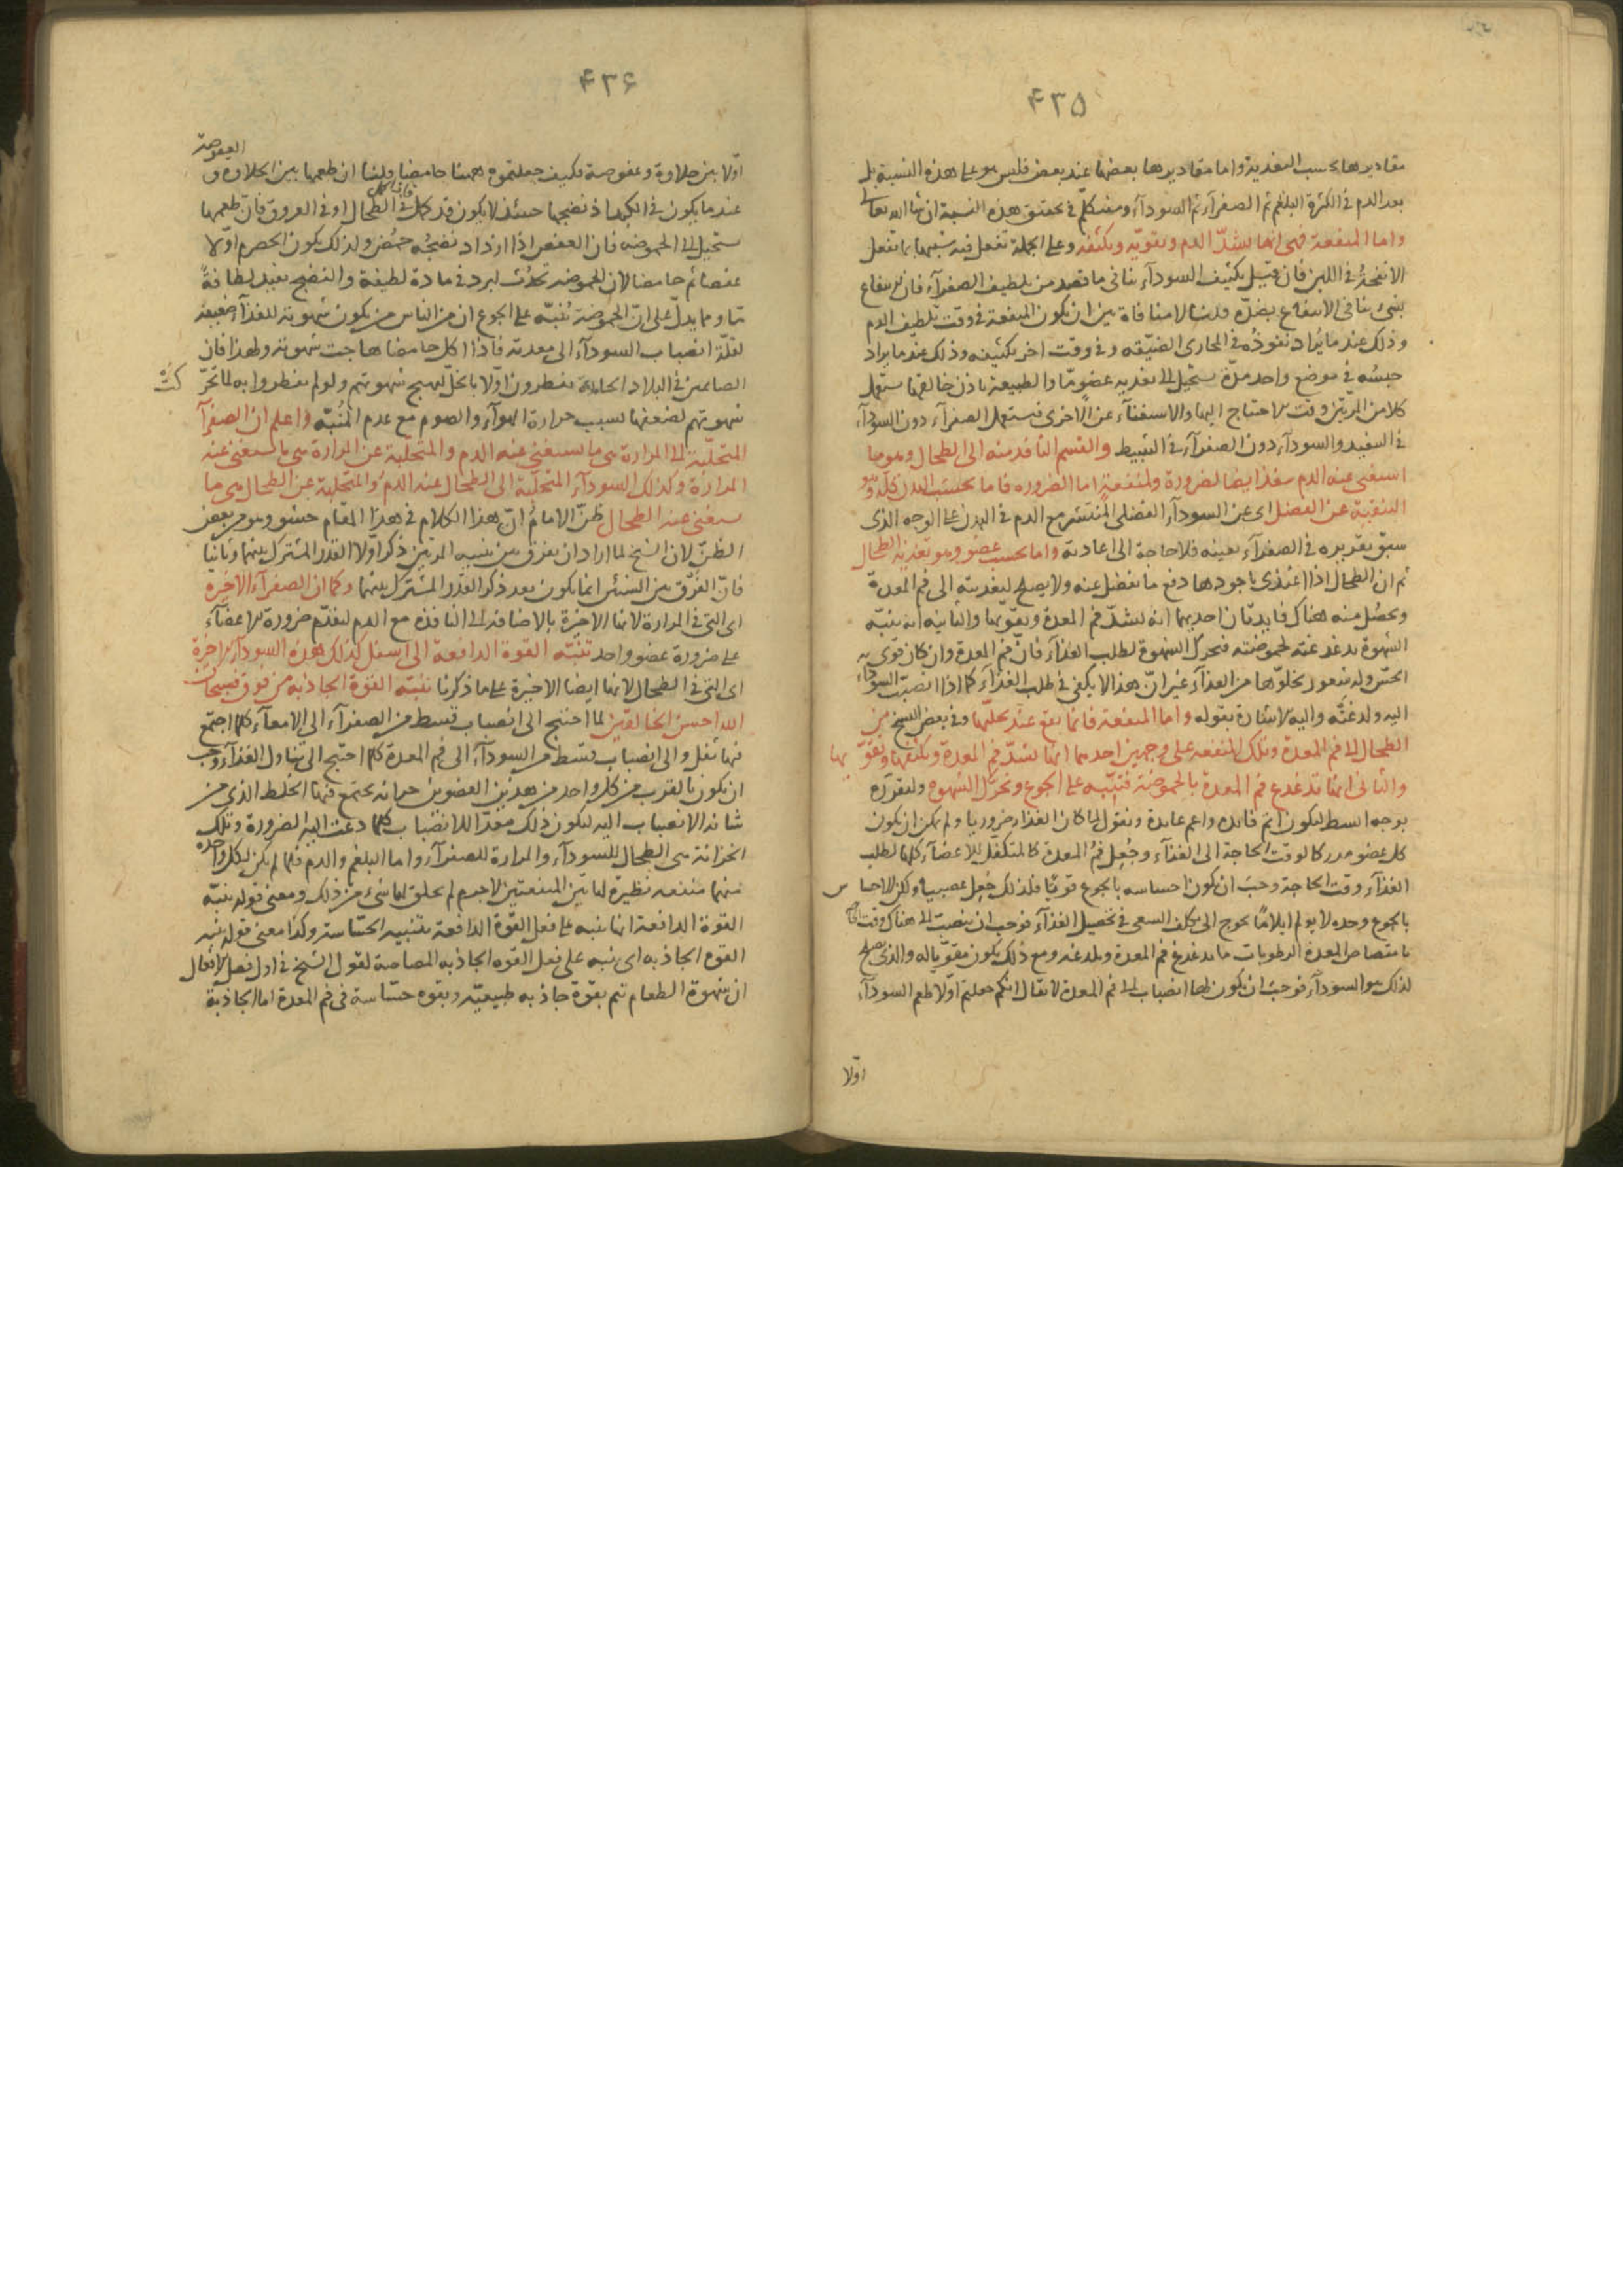 ٤٣٥
مقاديرها بحسب التغذية واما مقاديرها بعضها عند بعض فليس هو على هذه النسبة بل
بعد الدم في الكثرة البلغم ثم الصفرآء ثم السودآء وسنتكلم في تحقيق هذه النسبة ان شا الله تعالى
واما المنفعة فهى انها تشدّ الدم وتقويه وتكثفه وعلى الجملة تفعل فيه شبيها بما تفعل
الانفحة في اللبن فان قيل تكثيف السودآء ينافى ما قصد من تلطيف الصفرآء فان الانتفاع
بشئ ينافى الانتفاع بضدّه قلنا لا منافاة بين ان يكون المنفعة في وقت تلطيف الدم
وذلك عند ما يُراد نفوذه في المجارى الضيقه وفى وقت اخر تكثيفه وذلك عند ما يراد
حبسُه في موضع واحد مدّة يستحيل الى تغذيه عضو ما والطبيعة باذن خالقها تستعمل
كلا من المرتين وقت الاحتياج اليها والاستغنآء عن الاخرى فيستعمل الصفرآء دون السودآء
في التنفيذ والسودآء دون الصفرآء في التثبيط والقسم النافذ منه الى الطحال وهو ما
استغنى عنه الدم ينفذ ايضا لضرورة ولمنفعة اما الضروره فاما بحسب البدن كله وهو
التنقية عن الفضل اى عن السودآء الفضلى المنتشر مع الدم في البدن على الوجه الذى
سبق تقريره في الصفرآء بعينه فلا حاجة الى اعادته واما بحسب عضو وهو تغذية الطحال
ثم ان الطحال اذا اغتذى باجودها دفع ما يفضل عنه ولا يصلح لتغذيته الى فم المعدة
وتحصُل منه هناك فايدتان احديهما انه يشدّ فم المعدة ويقوّيها والثانيه انه ينبّه
الشهوة بدغدغته لحموضته فتحرك الشهوة لطلب الغذآء فانّ فم المعدة وان كان قوى
الحسّ وله شعور بخلوّها من الغذآء غير انّ هذا لا يكفى في طلب الغذآء كما اذا انصبّ السودآء
اليه ولدغته واليه الاشارة بقوله واما المنفعة فانما تقع عند تحلبها وفى بعض النسخ من
الطحال الى فم المعدة وتلك المنفعه على وجهين احدهما انها تشدّ فم المعدة وتكثفها وتقويها
والثانى انها تدغدغ فم المعدة بالحموضة فتنبّه على الجوع وتحرّك الشهوه ولنقرره
بوجه ابسط ليكون اتم فايده واعم عايدة ونقول لما كان الغذاء ضروريا ولم يمكن ان يكون
كل عضو مدركا لوقت الحاجة الى الغذآء وجُعِل فم المعدة كالمتكفل للاعضآء كلها لطلب
الغذآء وقت الحاجة وجب ان يكون احساسه بالجوع قويّا فلذلك جُعِل عصبيا ولكن الاحساس
بالجوع وحده لا يولم ايلامًا يحوج الى تكلف السعى في تحصيل الغذآء فوجب ان ينصبّ الى هناك وقت
بامتصاص المعدة الرطوبات ما يدغدغ فم المعدة ويلدغه ومع ذلك يكون مقوّياله والذى يصلح
لذلك هو السودآء فوجب ان يكون لها انصباب الى فم المعدة لا يقال انكم جعلتم اوّلا طعم السودآء
اوّلا
٤٣۶
اوّلا بين حلاوة وعفوصة فكيف جعلتموه ههنا حامضا قلنا ان طعمها بين الحلاوه و العفوصة
عند ما يكون في الكبد اذ نضجها حينئذ لا يكون قد كمل في الطحال او في العروق فانّ طعمها
يستحيل الى الحموضه فان العفص اذا ازداد نضجُه حمُض ولذلك يكون الحصرم اوّلا
عفصا ثم حامضا لان الحموضه تحدُث لبرد في مادة لطيفة والنضج يفيد لطافةً
ما ومما يدلّ على انّ الحموضة تُنبّه على الجوع ان من الناس من يكون شهوته للغذآء ضعيفه
لقلّة انصباب السودآء الى معدته فاذا اكل حامضا هاجت شهوته ولهذا فان
الصائمين في البلاد الحارة يفطرون اوّلا بالخلّ ليهيج شهوتهم ولو لم يفطروا به لما تحرّكت
شهوتهم لضعفها بسبب حرارة الهوآء والصوم مع عدم المُنبّه واعلم ان الصفرآ
المتحلّبة الى المرارة هى ما استغنى عنه الدم والمتحلّبة عن المرارة هى ما استغنى عنه
المرارة وكذلك السودآء المتحلّبة الى الطحال عند الدم والمتحلبة عن الطحال هى ما
يستغنى عنه الطحال ظنّ الامامُ انّ هذا الكلام في هذا المقام حشو وهو من بعض
الظنّ لان الشيخ لما اراد ان يفرق بين تنبيه المرتين ذكر اوّلا القدر المشترك بينهما وثانيا
فانّ الفرْق بين الشيئن انما يكون بعد ذكر القدر المشترك بينهما وكما ان الصفرآء الاخيرة
اى التى في المرارة لانها الاخيرة بالاضافة الى النافذه مع الدم لتقدّم ضرورة الاعضآء
على ضرورة عضو واحد تنبّه القوة الدافعة الى اسفل كذلك هذه السودآء الاخيرة
اى التى في الطحال لانها ايضا الاخيرة على ما ذكرنا تنبّه القوة الجاذبه من فوق فسبحان
الله احسن الخالقين لما احتيج الى انصباب قسط من الصفرآء الى الامعآء كلما اجتمع
فيها ثفل والى انصباب قسط من السودآء الى فم المعدة كلما احتيج الى تناول الغذآء وجب
ان يكون بالقرب من كل واحد من هذين العضوين خزانه يجتمع فيها الخلط الذى من
شانه الانصباب اليه ليكون ذلك معدّا للانصباب كلما دعت اليه الضرورة وتلك
الخزانة هى الطحال للسودآء والمرارة للصفرآء واما البلغم والدم فلما لم يكن لكل واحد
منهما منفعه نظيرة لهاتين المنفعتين لاجرم لم يخلق لهما شئ من ذلك ومعنى قوله ينبّه
القوة الدافعة انها ينبه على فعل القوة الدافعة بتنبيه الحسّاسة وكذا معنى قوله ينبه
القوه الجاذبه اى ينبه على فعل القوه الجاذبه المصاصة لقول الشيخ في اول فصل الافعال
ان شهوة الطعام تتم بقوة جاذبه طبيعيّه وبقوه حسّاسة في فم المعدة اما الجاذبة